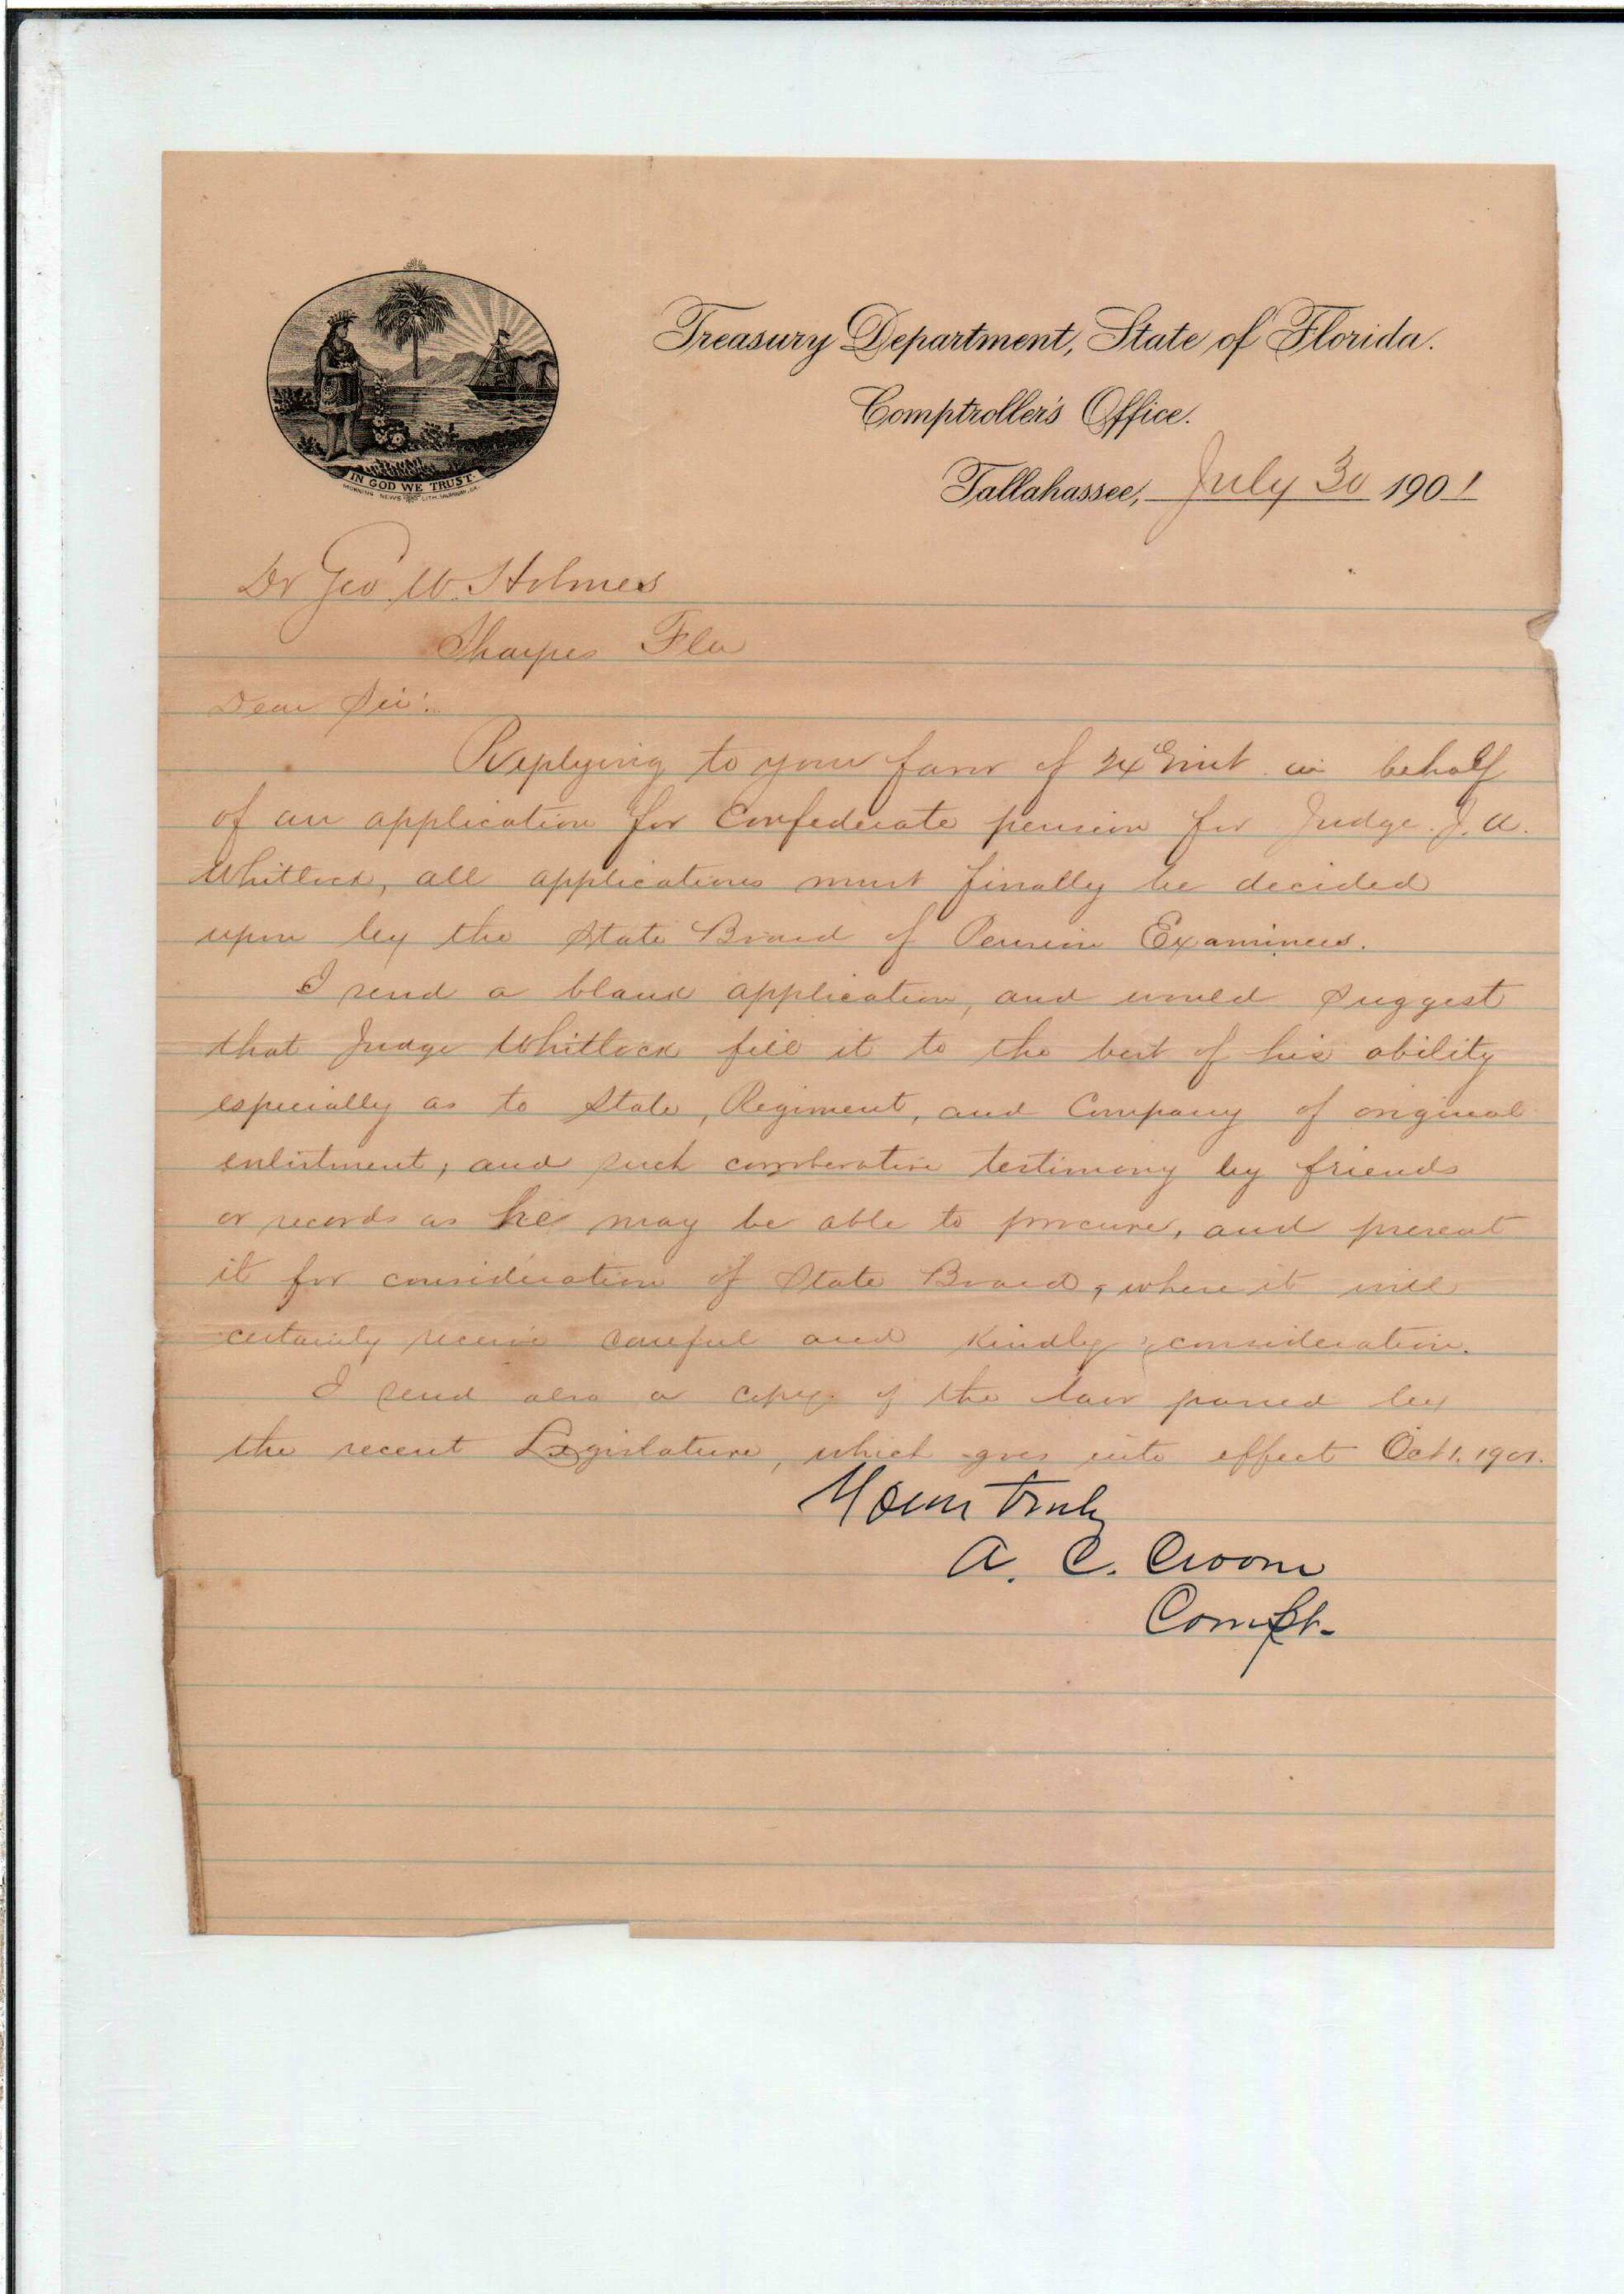 Treasury Department, State of Florida.
Comptroller's Office.
Tallahassee, July 30 1901
IN GOD WE TRUST
Dr Geo. W. Holmes
Sharpes Fla
Dear Sir:
Replying to your favor of 24th inst. in behalf
of an application for Confederate pension for Judge J. A.
Whitlock, all applications must finally be decided
upon by the State Board of Pension Examiners.
I send a blank application, and would suggest
that Judge Whitlock fill it to the best of his ability
especially as to State, Regiment, and Company of original
enlistment, and such corroborative testimony by friends
or records as he may be able to procure, and present
it for consideration of State Board, where it will
certainly receive careful and kindly consideration.
I send also a copy of the law passed by
the recent Legislature, which goes into effect Oct 1. 1901.
Yours truly
A. C. Croom
Compt.